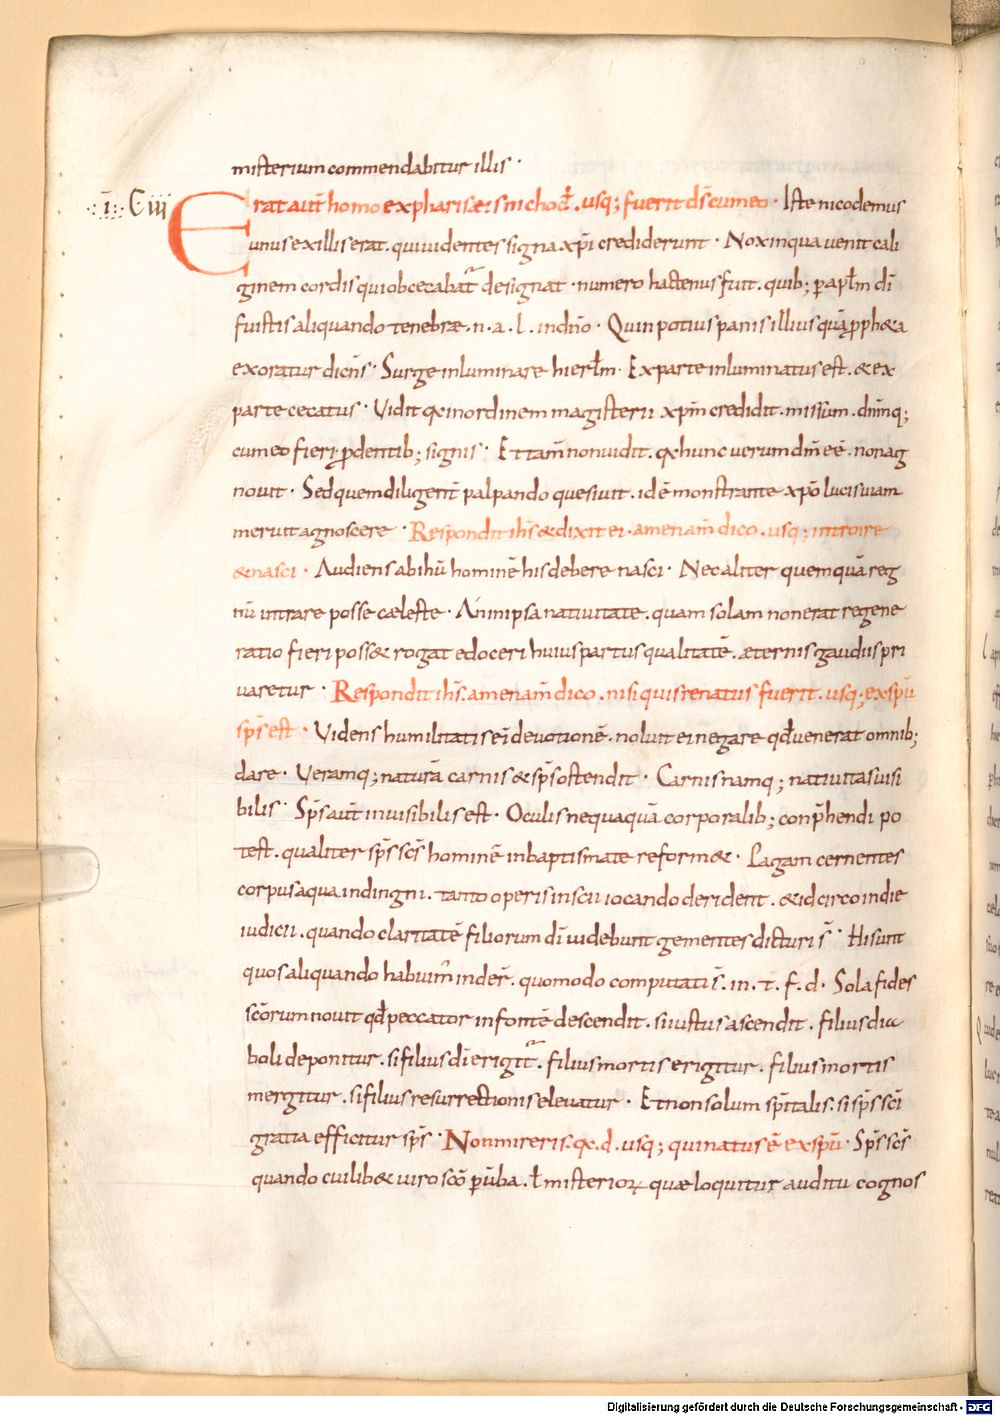 misterium commendabitur illis·
·:i:· C iii Erat aut̄ homo ex phariseis nichod̄. usq; fuerit ds̄ cum eo· Iste nicodemus
unus ex illis erat. qui videntes signa xp̄i crediderunt· Nox in qua venit cali
ginem cordis qui obcecabat designat· numero hactenus fuit. quib; p apl̄m di
fuistis aliquando tenebræ. n. a. l. in dn̄o· Quin potius panis illius quā pph&a
exoratur dicn̄s· Surge inluminare hierl̄m· Ex parte inluminatus est. & ex
parte cecatus· Vidit q̄ in ordinem magisterii xp̄m credidit. missum. dnīnq;
cum eo fieri pdentib; signis· Et tam̄ non vidit. q̄ hunc verum dm̄ eē. non ag
novit· Sed quem diligent̄ palpando quesivit. idē monstrante xp̄o lucis viam
meruit agnoscere· Respondit ihs̄ & dixit ei. amen am̄ dico. usq; introire
& nasci· Audiens ab ihū hominē his debere nasci· Nec aliter quemquā reg
nū intrare posse cæleste· An in ipsa nativitate. quam solam non erat regene
ratio fieri poss& rogat edoceri huius partus qualitatē. æternis gaudiis pri
varetur· Respondit ihs̄. amen am̄ dico. nisi quis renatus fuerit. usq; ex spū
sps̄ est· Videns humilitatis ei devotionē. noluit ei negare qd̄ venerat omnib;
dare· Veramq; naturā carnis & sps̄ ostendit· Carnis namq; nativitas visi
bilis· Sps̄ aut̄ invisibilis est· Oculis nequaquā corporalib; conp̄hendi po
test. qualiter sps̄ scs̄ hominē in baptismate reform&· Pagani cernentes
corpus aqua indingni. tanto operis inscii iocando derident. & id circo in die
iudicii. quando claritatē filiorum dī videbunt gementes dicturi s̄· Hi sunt
quos aliquando habuim' in der̄. quomodo computati s̄. in. t. f. d· Sola fides
scōrum novit qd̄ peccator in fontē descendit. si iustus ascendit. filius dia
boli deponitur. si filius dī erigit. filius mortis erigitur. filius mortis
mergitur. si filius resurrectionis elevatur· Et non solum sp̄italis. si sps̄ scī
gratia efficitur sps̄· Non mireris. q̄. d. usq; qui natus ē ex spū· Sps̄ scs̄
quando cuilib& viro scō p verba. ł misterioꝝ quæ loquitur auditu cognos
Digitalisierung gefördert durch die Deutsche Forschungsgemeinschaft · DFG